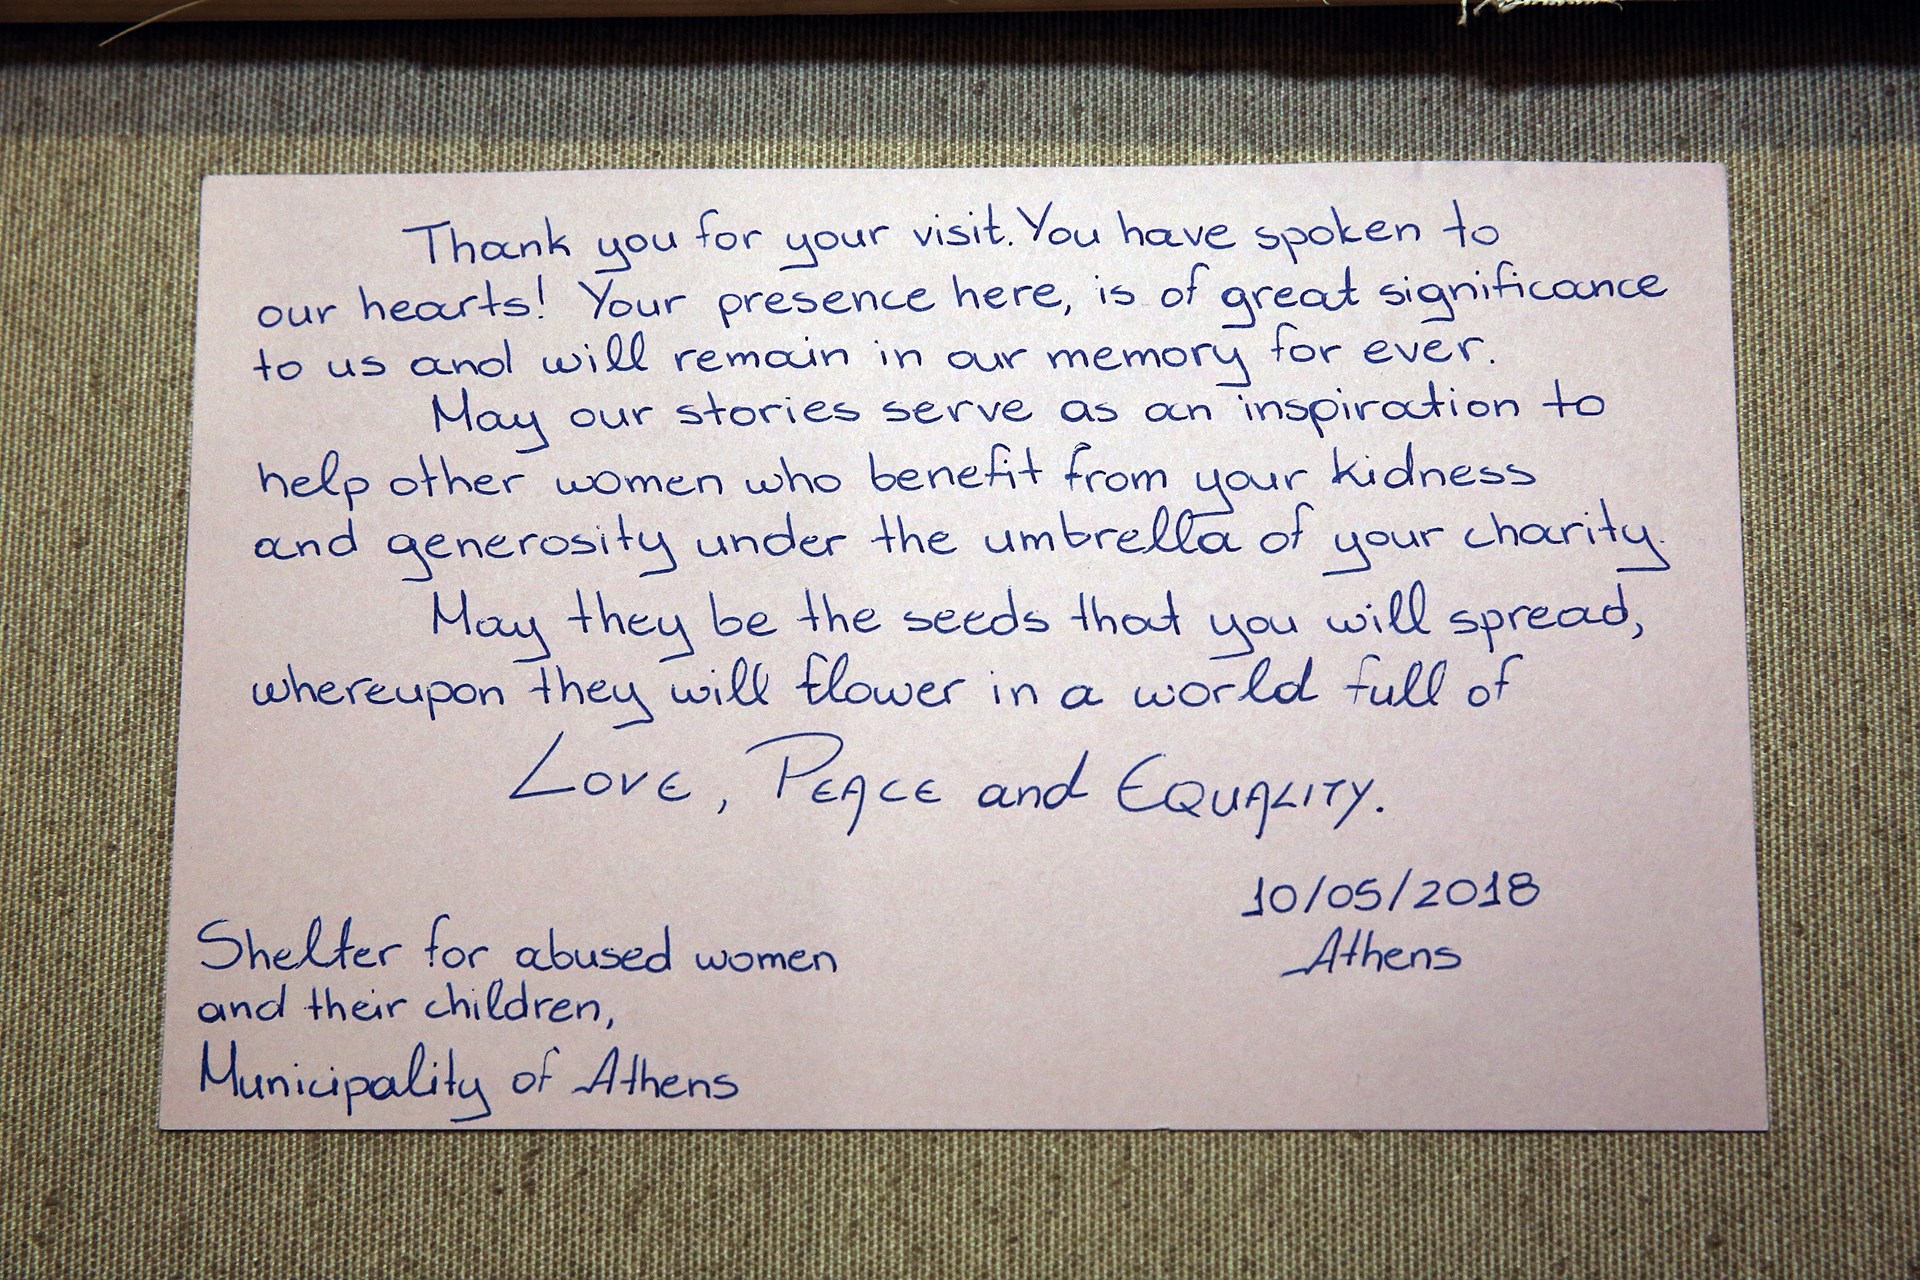 Thank you for your visit. You have spoken to
our hearts! Your presence here, is of great significance
to us and will remain in our memory for ever.
May our stories serve as an inspiration to
help other women who benefit from your kidness
and generosity under the umbrella of your charity.
May they be the seeds that you will spread,
whereupon they will flower in a world full of
LOVE, PEACE and EQUALITY.
10/05/2018
Athens
Shelter for abused women
and their children,
Municipality of Athens